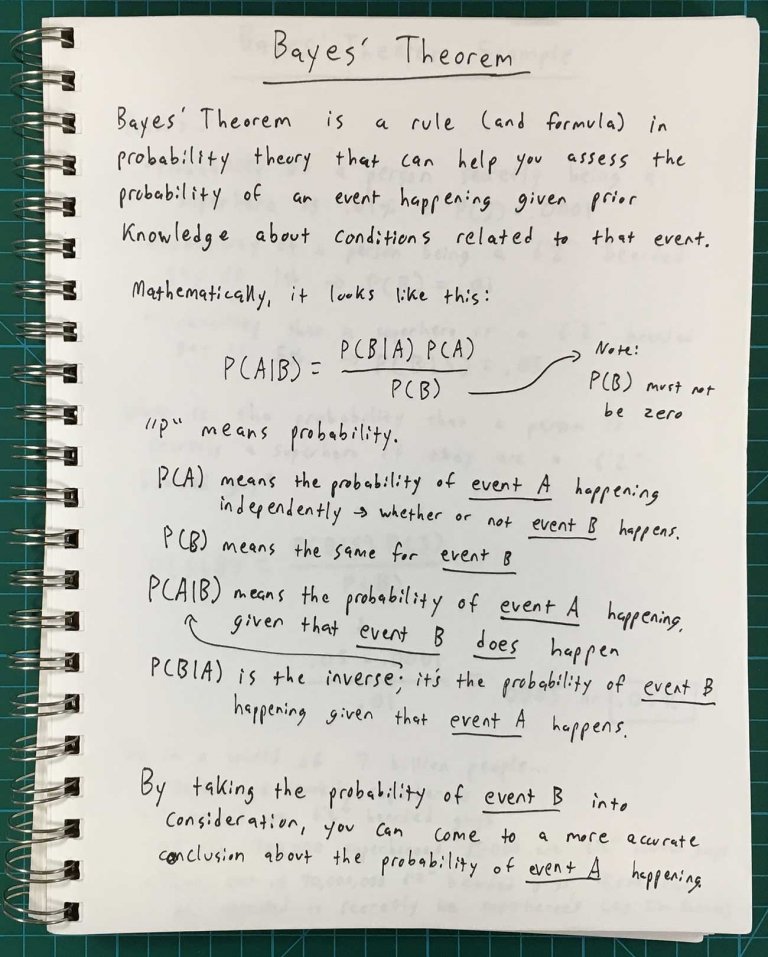 Bayes' Theorem
Bayes' Theorem is a rule (and formula) in
probability theory that can help you assess the
probability of an event happening given prior
Knowledge about conditions related to that event.
Mathematically, it looks like this:
P(A|B) = P(B|A) P(A) / P(B)
Note:
P(B) must not
be zero
"P" means probability.
P(A) means the probability of event A happening
independently → whether or not event B happens.
P(B) means the same for event B
P(A|B) means the probability of event A happening,
given that event B does happen
P(B|A) is the inverse; it's the probability of event B
happening given that event A happens.
By taking the probability of event B into
consideration, you can come to a more accurate
conclusion about the probability of event A happening.